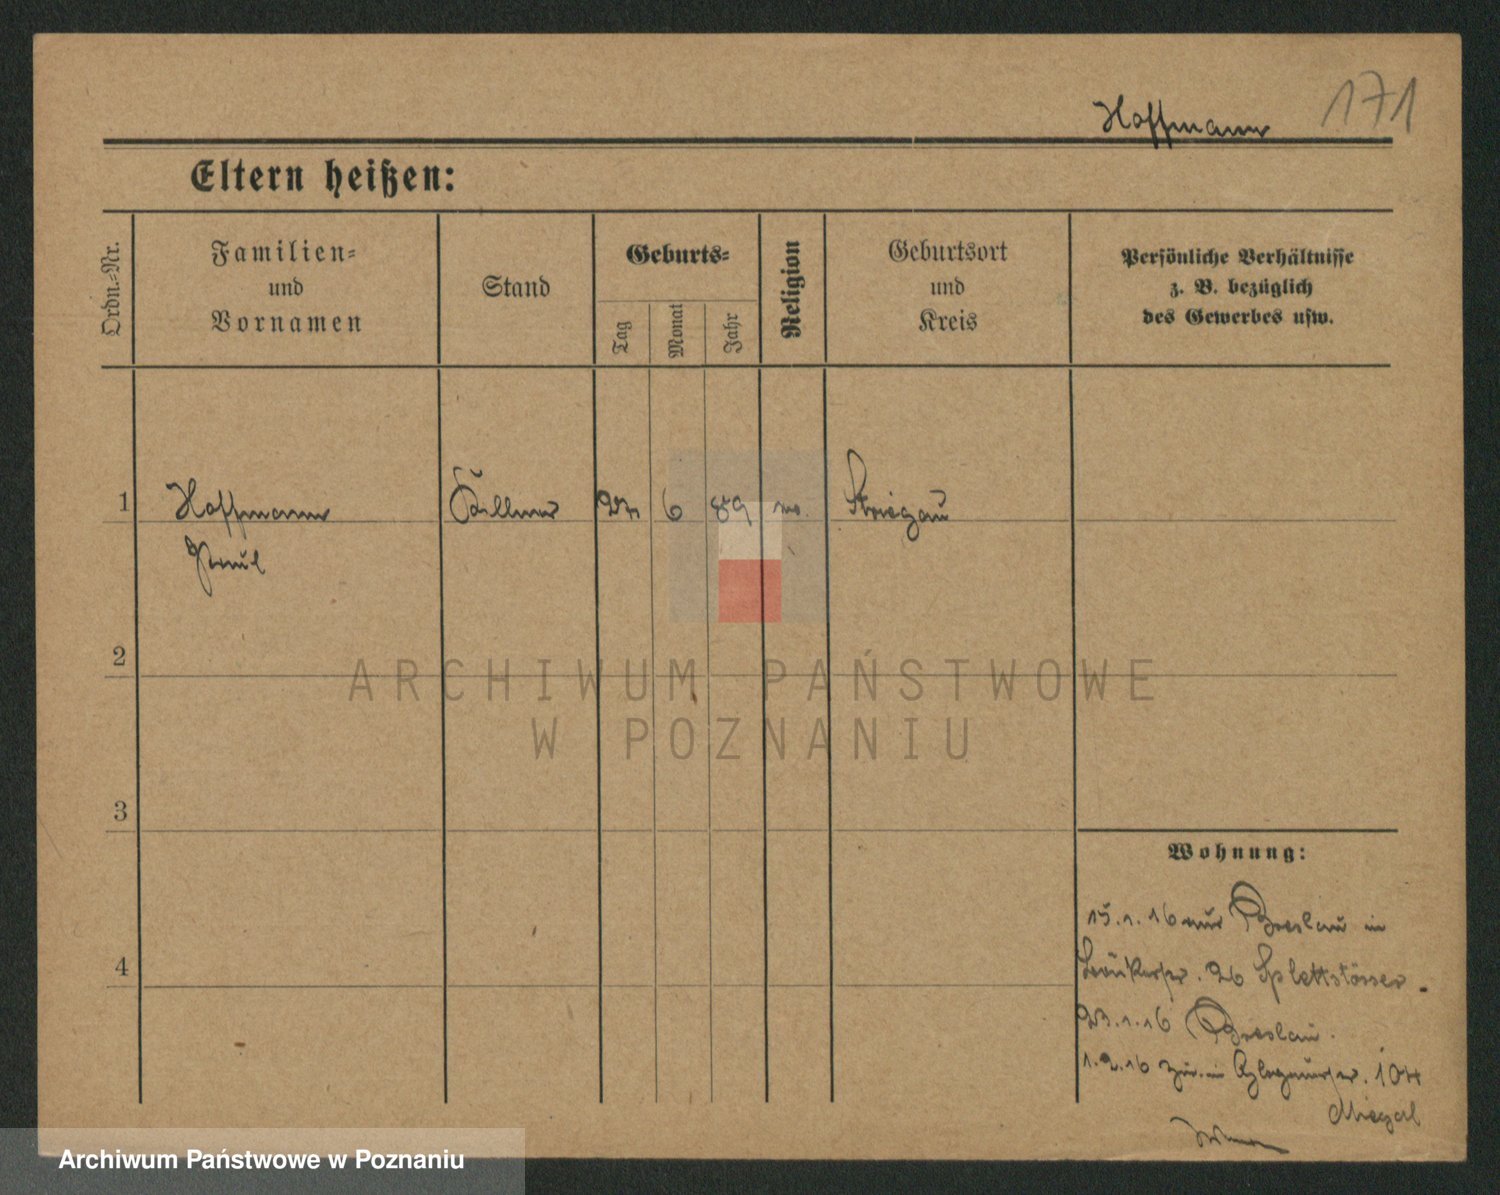 Hoffmann 171
Eltern heißen:
Ordn.-Nr.
Familien-
und
Vornamen
Stand
Geburts-
Tag
Monat
Jahr
Religion
Geburtsort
und
Kreis
Persönliche Verhältnisse
z. B. bezüglich
des Gewerbes usw.
1 Hoffmann Kellner 6 89 Striegau
Paul
2
ARCHIWUM PAŃSTWOWE
W POZNANIU
3
Wohnung:
15.1.16 aus Breslau in
26 Splettstösser
23.1.16 Breslau.
1.2.16 104
Miegal
4
Archiwum Państwowe w Poznaniu